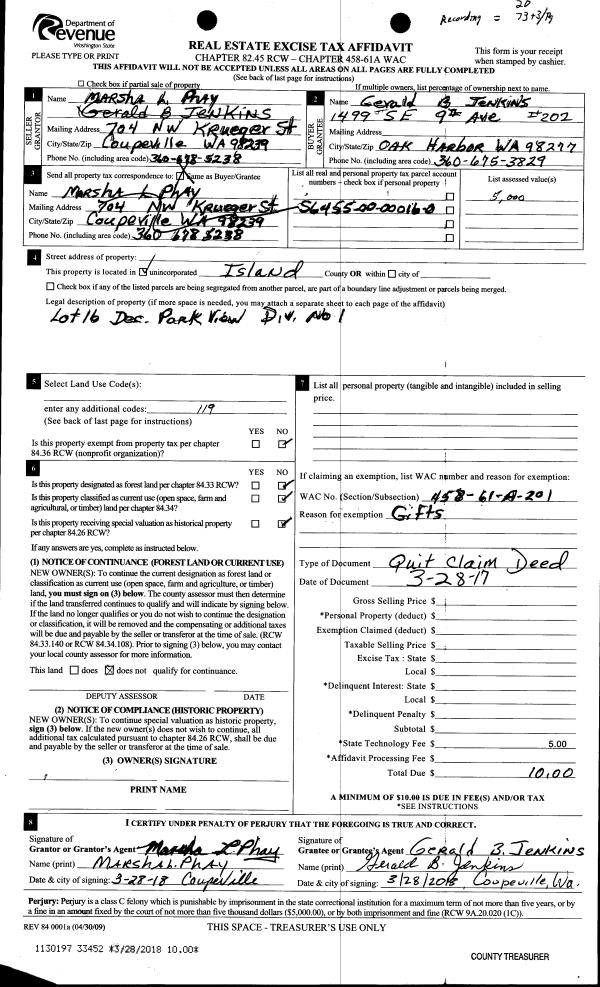 Recording = 20
73+3/Pg
Department of
Revenue
Washington State
PLEASE TYPE OR PRINT
REAL ESTATE EXCISE TAX AFFIDAVIT
CHAPTER 82.45 RCW – CHAPTER 458-61A WAC
This form is your receipt
when stamped by cashier.
THIS AFFIDAVIT WILL NOT BE ACCEPTED UNLESS ALL AREAS ON ALL PAGES ARE FULLY COMPLETED
(See back of last page for instructions)
Check box if partial sale of property
If multiple owners, list percentage of ownership next to name.
1
SELLER
GRANTOR
Name Marsha L. Phay
Gerald B Jenkins
Mailing Address 704 NW Krueger St
City/State/Zip Coupeville WA 98239
Phone No. (including area code) 360-678-5238
2
BUYER
GRANTEE
Name Gerald B Jenkins
1497 SE 9th Ave #202
Mailing Address
City/State/Zip Oak Harbor WA 98277
Phone No. (including area code) 360-675-3829
3
Send all property tax correspondence to: Same as Buyer/Grantee
Name Marsha L Phay
Mailing Address 704 NW Krueger St
City/State/Zip Coupeville WA 98239
Phone No. (including area code) 360 678 5238
List all real and personal property tax parcel account
numbers – check box if personal property
S6455-00-00016-0
List assessed value(s)
5,000
4
Street address of property:
This property is located in unincorporated Island County OR within city of
Check box if any of the listed parcels are being segregated from another parcel, are part of a boundary line adjustment or parcels being merged.
Legal description of property (if more space is needed, you may attach a separate sheet to each page of the affidavit)
Lot 16 Dec. Park View Div. No 1
5
Select Land Use Code(s):
enter any additional codes: 119
(See back of last page for instructions)
YES NO
Is this property exempt from property tax per chapter
84.36 RCW (nonprofit organization)?
6
YES NO
Is this property designated as forest land per chapter 84.33 RCW?
Is this property classified as current use (open space, farm and
agricultural, or timber) land per chapter 84.34?
Is this property receiving special valuation as historical property
per chapter 84.26 RCW?
If any answers are yes, complete as instructed below.
(1) NOTICE OF CONTINUANCE (FOREST LAND OR CURRENT USE)
NEW OWNER(S): To continue the current designation as forest land or
classification as current use (open space, farm and agriculture, or timber)
land, you must sign on (3) below. The county assessor must then determine
if the land transferred continues to qualify and will indicate by signing below.
If the land no longer qualifies or you do not wish to continue the designation
or classification, it will be removed and the compensating or additional taxes
will be due and payable by the seller or transferor at the time of sale. (RCW
84.33.140 or RCW 84.34.108). Prior to signing (3) below, you may contact
your local county assessor for more information.
This land does does not qualify for continuance.
DEPUTY ASSESSOR DATE
(2) NOTICE OF COMPLIANCE (HISTORIC PROPERTY)
NEW OWNER(S): To continue special valuation as historic property,
sign (3) below. If the new owner(s) does not wish to continue, all
additional tax calculated pursuant to chapter 84.26 RCW, shall be due
and payable by the seller or transferor at the time of sale.
(3) OWNER(S) SIGNATURE
PRINT NAME
7
List all personal property (tangible and intangible) included in selling
price.
If claiming an exemption, list WAC number and reason for exemption:
WAC No. (Section/Subsection) 458-61-A-201
Reason for exemption Gifts
Type of Document Quit Claim Deed
Date of Document 3-28-17
Gross Selling Price $
*Personal Property (deduct) $
Exemption Claimed (deduct) $
Taxable Selling Price $
Excise Tax : State $
Local $
*Delinquent Interest: State $
Local $
*Delinquent Penalty $
Subtotal $
*State Technology Fee $ 5.00
*Affidavit Processing Fee $
Total Due $ 10.00
A MINIMUM OF $10.00 IS DUE IN FEE(S) AND/OR TAX
*SEE INSTRUCTIONS
8
I CERTIFY UNDER PENALTY OF PERJURY THAT THE FOREGOING IS TRUE AND CORRECT.
Signature of
Grantor or Grantor's Agent Marsha L Phay
Name (print) MARSHA L. PHAY
Date & city of signing: 3-28-18 Coupeville
Signature of
Grantee or Grantee's Agent GERALD B. JENKINS
Name (print) Gerald B. Jenkins
Date & city of signing: 3/28/2018 Coupeville, Wa.
Perjury: Perjury is a class C felony which is punishable by imprisonment in the state correctional institution for a maximum term of not more than five years, or by
a fine in an amount fixed by the court of not more than five thousand dollars ($5,000.00), or by both imprisonment and fine (RCW 9A.20.020 (1C)).
REV 84 0001a (04/30/09)
THIS SPACE - TREASURER'S USE ONLY
1130197 33452 *3/28/2018 10.00*
COUNTY TREASURER